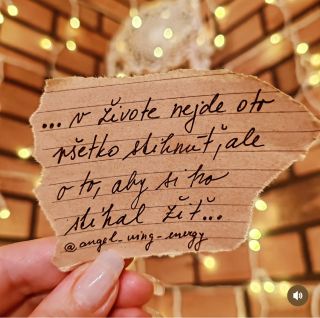 ... v živote nejde o to
všetko stihnúť, ale
o to, aby si ho
stíhal žiť...
@angel_wing_energy